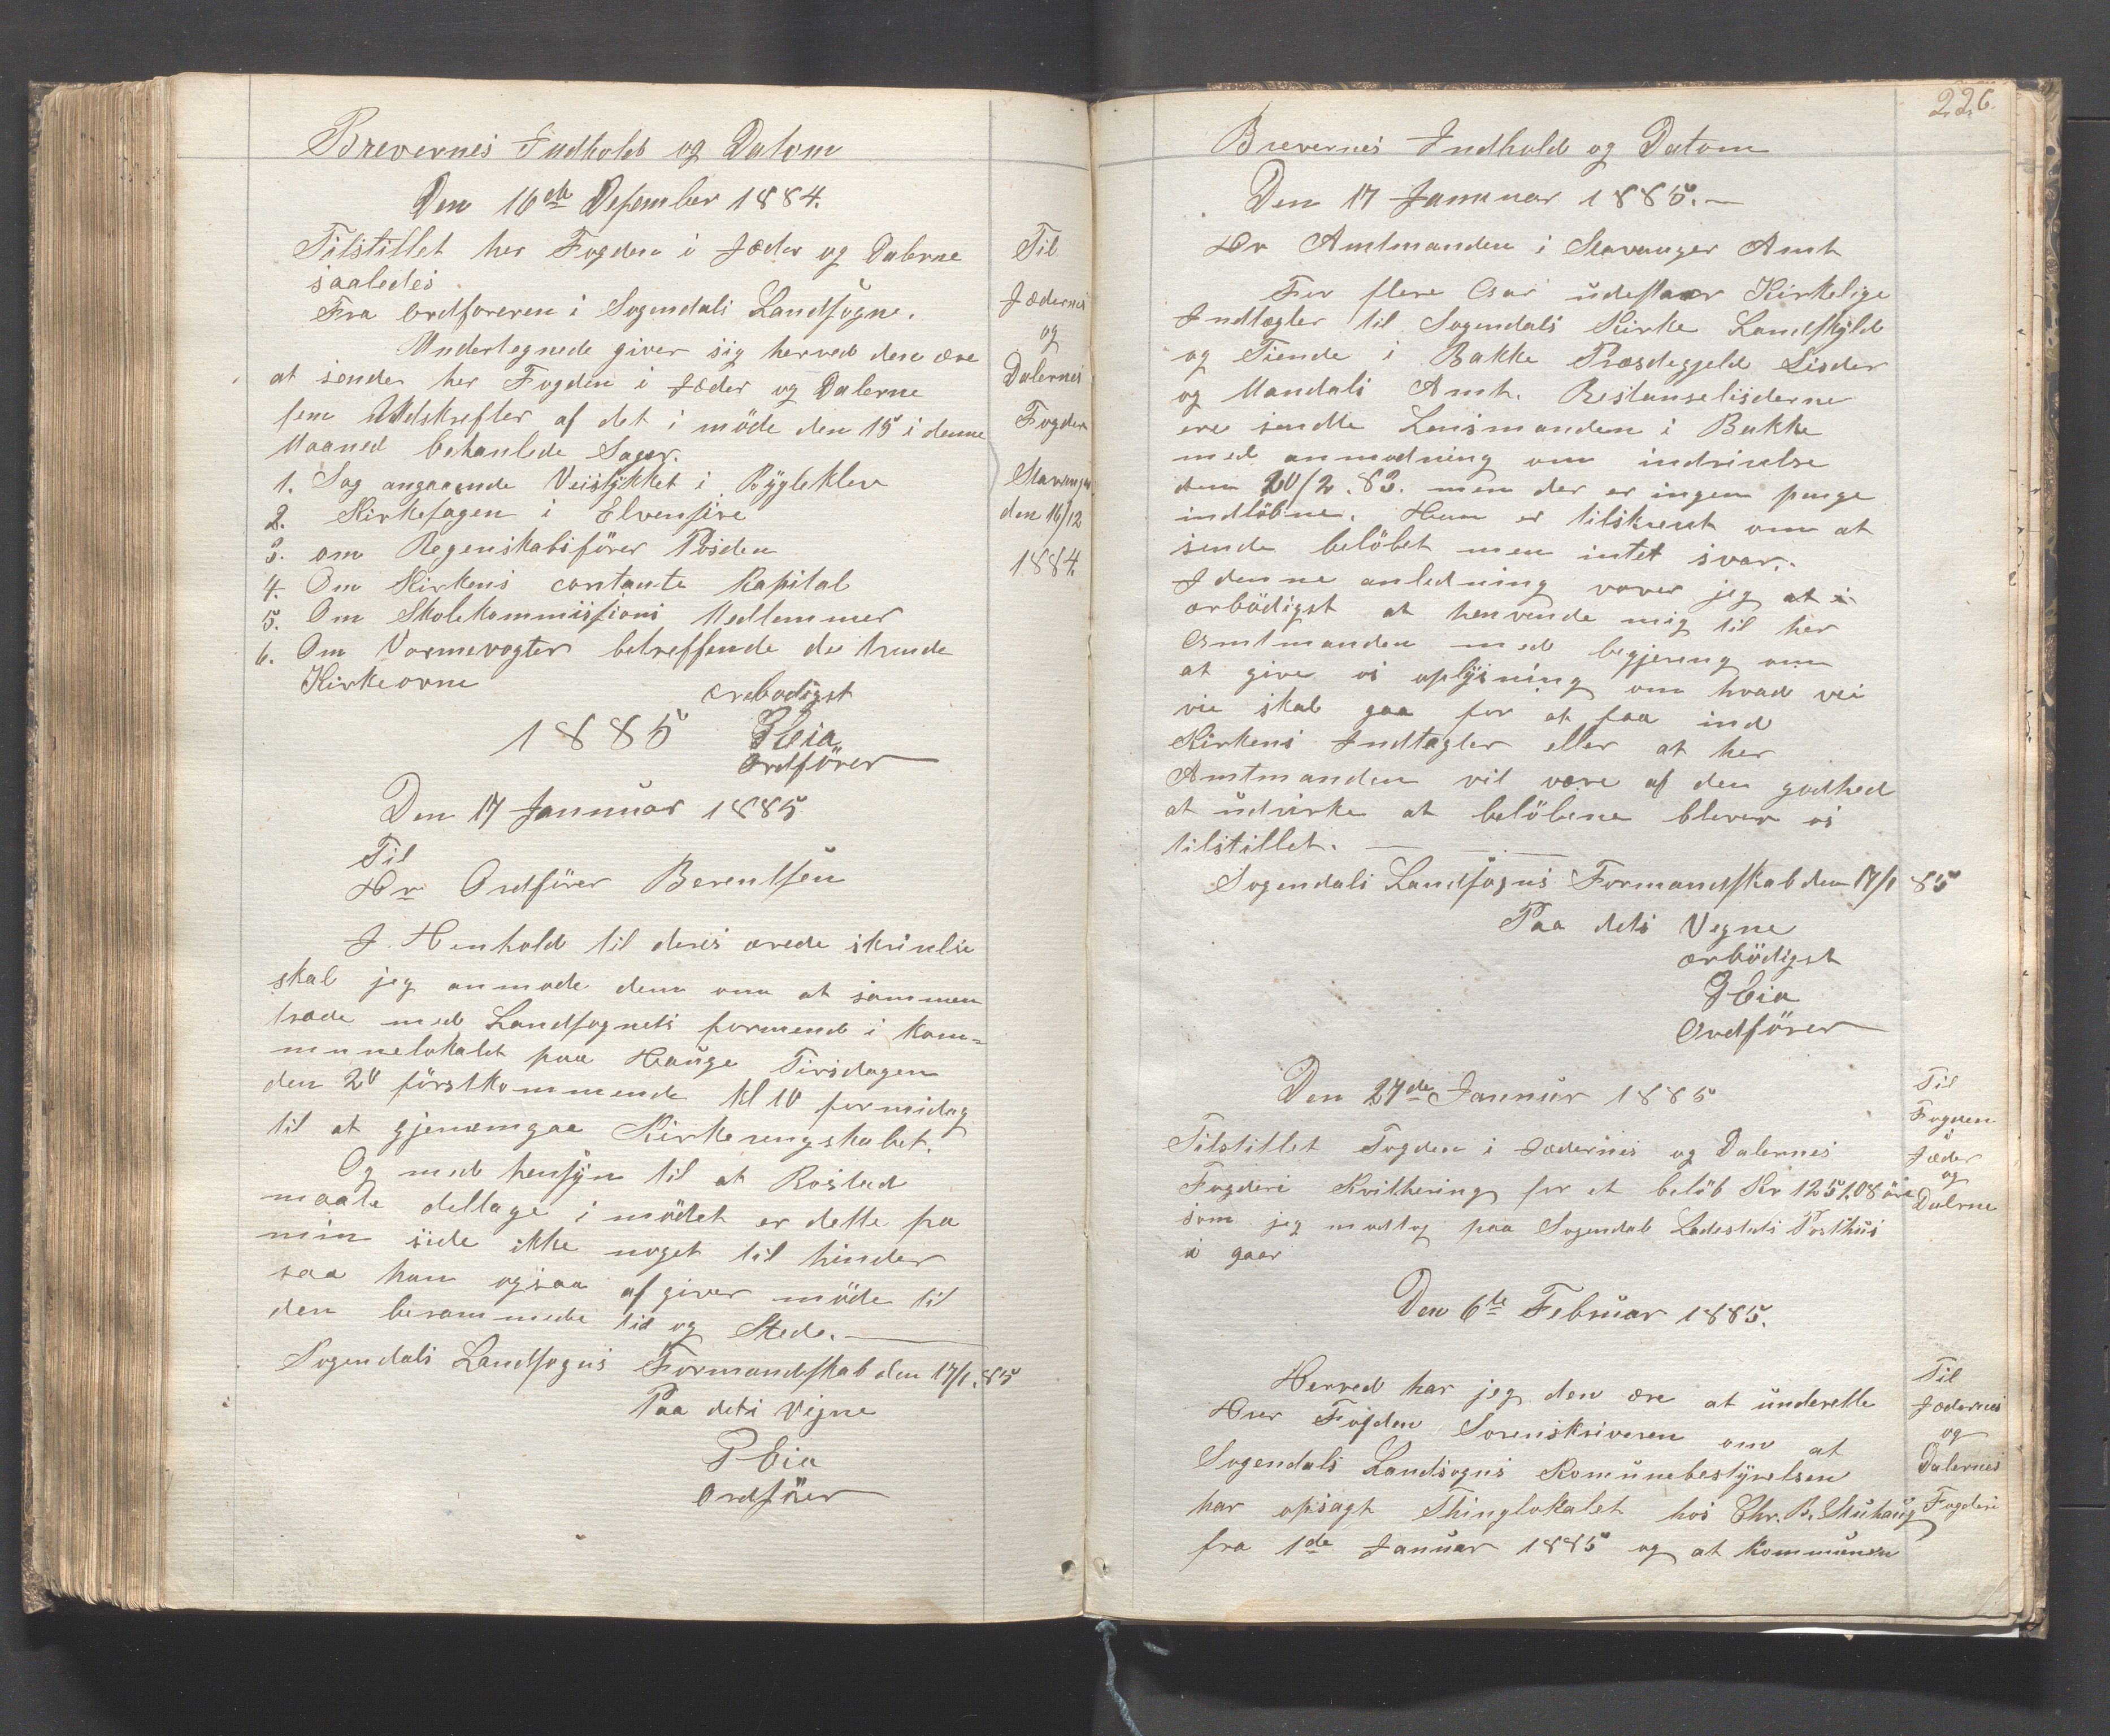 Brevernes Indhold og Datom
Den 16de Desember 1884.
Tilstillet her Fogden i Jæder og Dalerne
saaledes
Fra Ordføreren i Sogendals Landsogne.
Undertegnede giver sig herved den ære
at sende her Fogden i Jæder og Dalerne
fem Udskrefter af det i möde den 15 i denne
Maaned behanlede Sager.
1. Sag angaaende Veistykket i Rygleklev
2. Kirkesagen i
3. om Regenskabsförer
4. Om Kirkens contante Kapital
5. Om Skolekommissions Medlemmer
6. Om Varmevogter betreffende de tvende
Kirkeovne
ærbodigst
1885 P Eia
Ordförer
Til
Jædernes
og
Dalernes
Fogderi
Stavanger
den 16/12
1884.
Den 17 Januuar 1885
Til
Hr Ordförer Berentsen
I Henhold til deres ærede skrivlse
skal jeg anmode dem om at sammen
træde med Landsognets formend i Kom=
munelokalet paa Hauge Tirsdagen
den 20 förstkommende Kl 10 formidag
til at gjenemgaa Kirkerengskabet.
Og med hensyn til at Rostad
maate deltage i mödet er dette fra
min side ikke noget til hinder
saa han ogsaa afgiver möde til
den berammede tid og Stede.
Sogendals Landsogns Formandskab den 17/1.85
Paa dets Vegne
P Eia
Ordförer
226.
Brevernes Indhold og Datom
Den 17 Januuar 1885.—
Hr Amtmanden i Stavanger Amt
For flere Aar udestaar Kirkelige
Indtægter til Sogendals Kirke Landskyld
og Tiende i Bakke Præstegjeld Lister
og Mandals Amt. Restanselisterne
ere sendte Lensmanden i Bakke
med anmodning om indrivelse
den 20/2.83. men der er ingen penge
indlöbne. Han er tilskrevet om at
sende belöbet men intet svar.
I denne anledning vover jeg at i
ærbödigst at henvende mig til her
Amtmanden med begjering om
at give os oplysning om hvad vei
vie skal gaa for at faa ind
Kirkens Indtægter eller at her
Amtmanden vil være af den godhed
at udvirke at belöbene blever os
tilstillet.
Sogendals Landsogns Formandskab den 17/1 85
Paa dets Vegne
ærbödigst
P Eia
Ordförer
Den 27de Januur 1885
Tilstillet Fogden i Jædernes og Dalernes
Fogderi Kvithering for et belöb Kr 1251.08 öre
som jeg modtog paa Sogendal Ladesteds Posthus
i gaar
Til
Fogden
i
Jæder
og
Dalrne
Den 6te Februar 1885.
Herved har jeg den ære at underette
Herr Fogden Sorenskriveren om at
Sogendals Landsogns Komunebestyrelsen
har opsagt Thinglokalet hos Chr. B. Stuhaug
fra 1de Januar 1885 og at Kommunen
Til
Jædernes
og
Dalernes
Fogderi